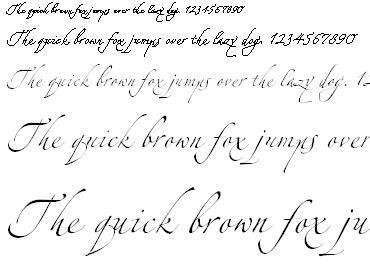 The quick brown fox jumps over the lazy dog. 1234567890
The quick brown fox jumps over the lazy dog. 1234567890
The quick brown fox jumps over the lazy dog. 12
The quick brown fox jumps over
The quick brown fox ju